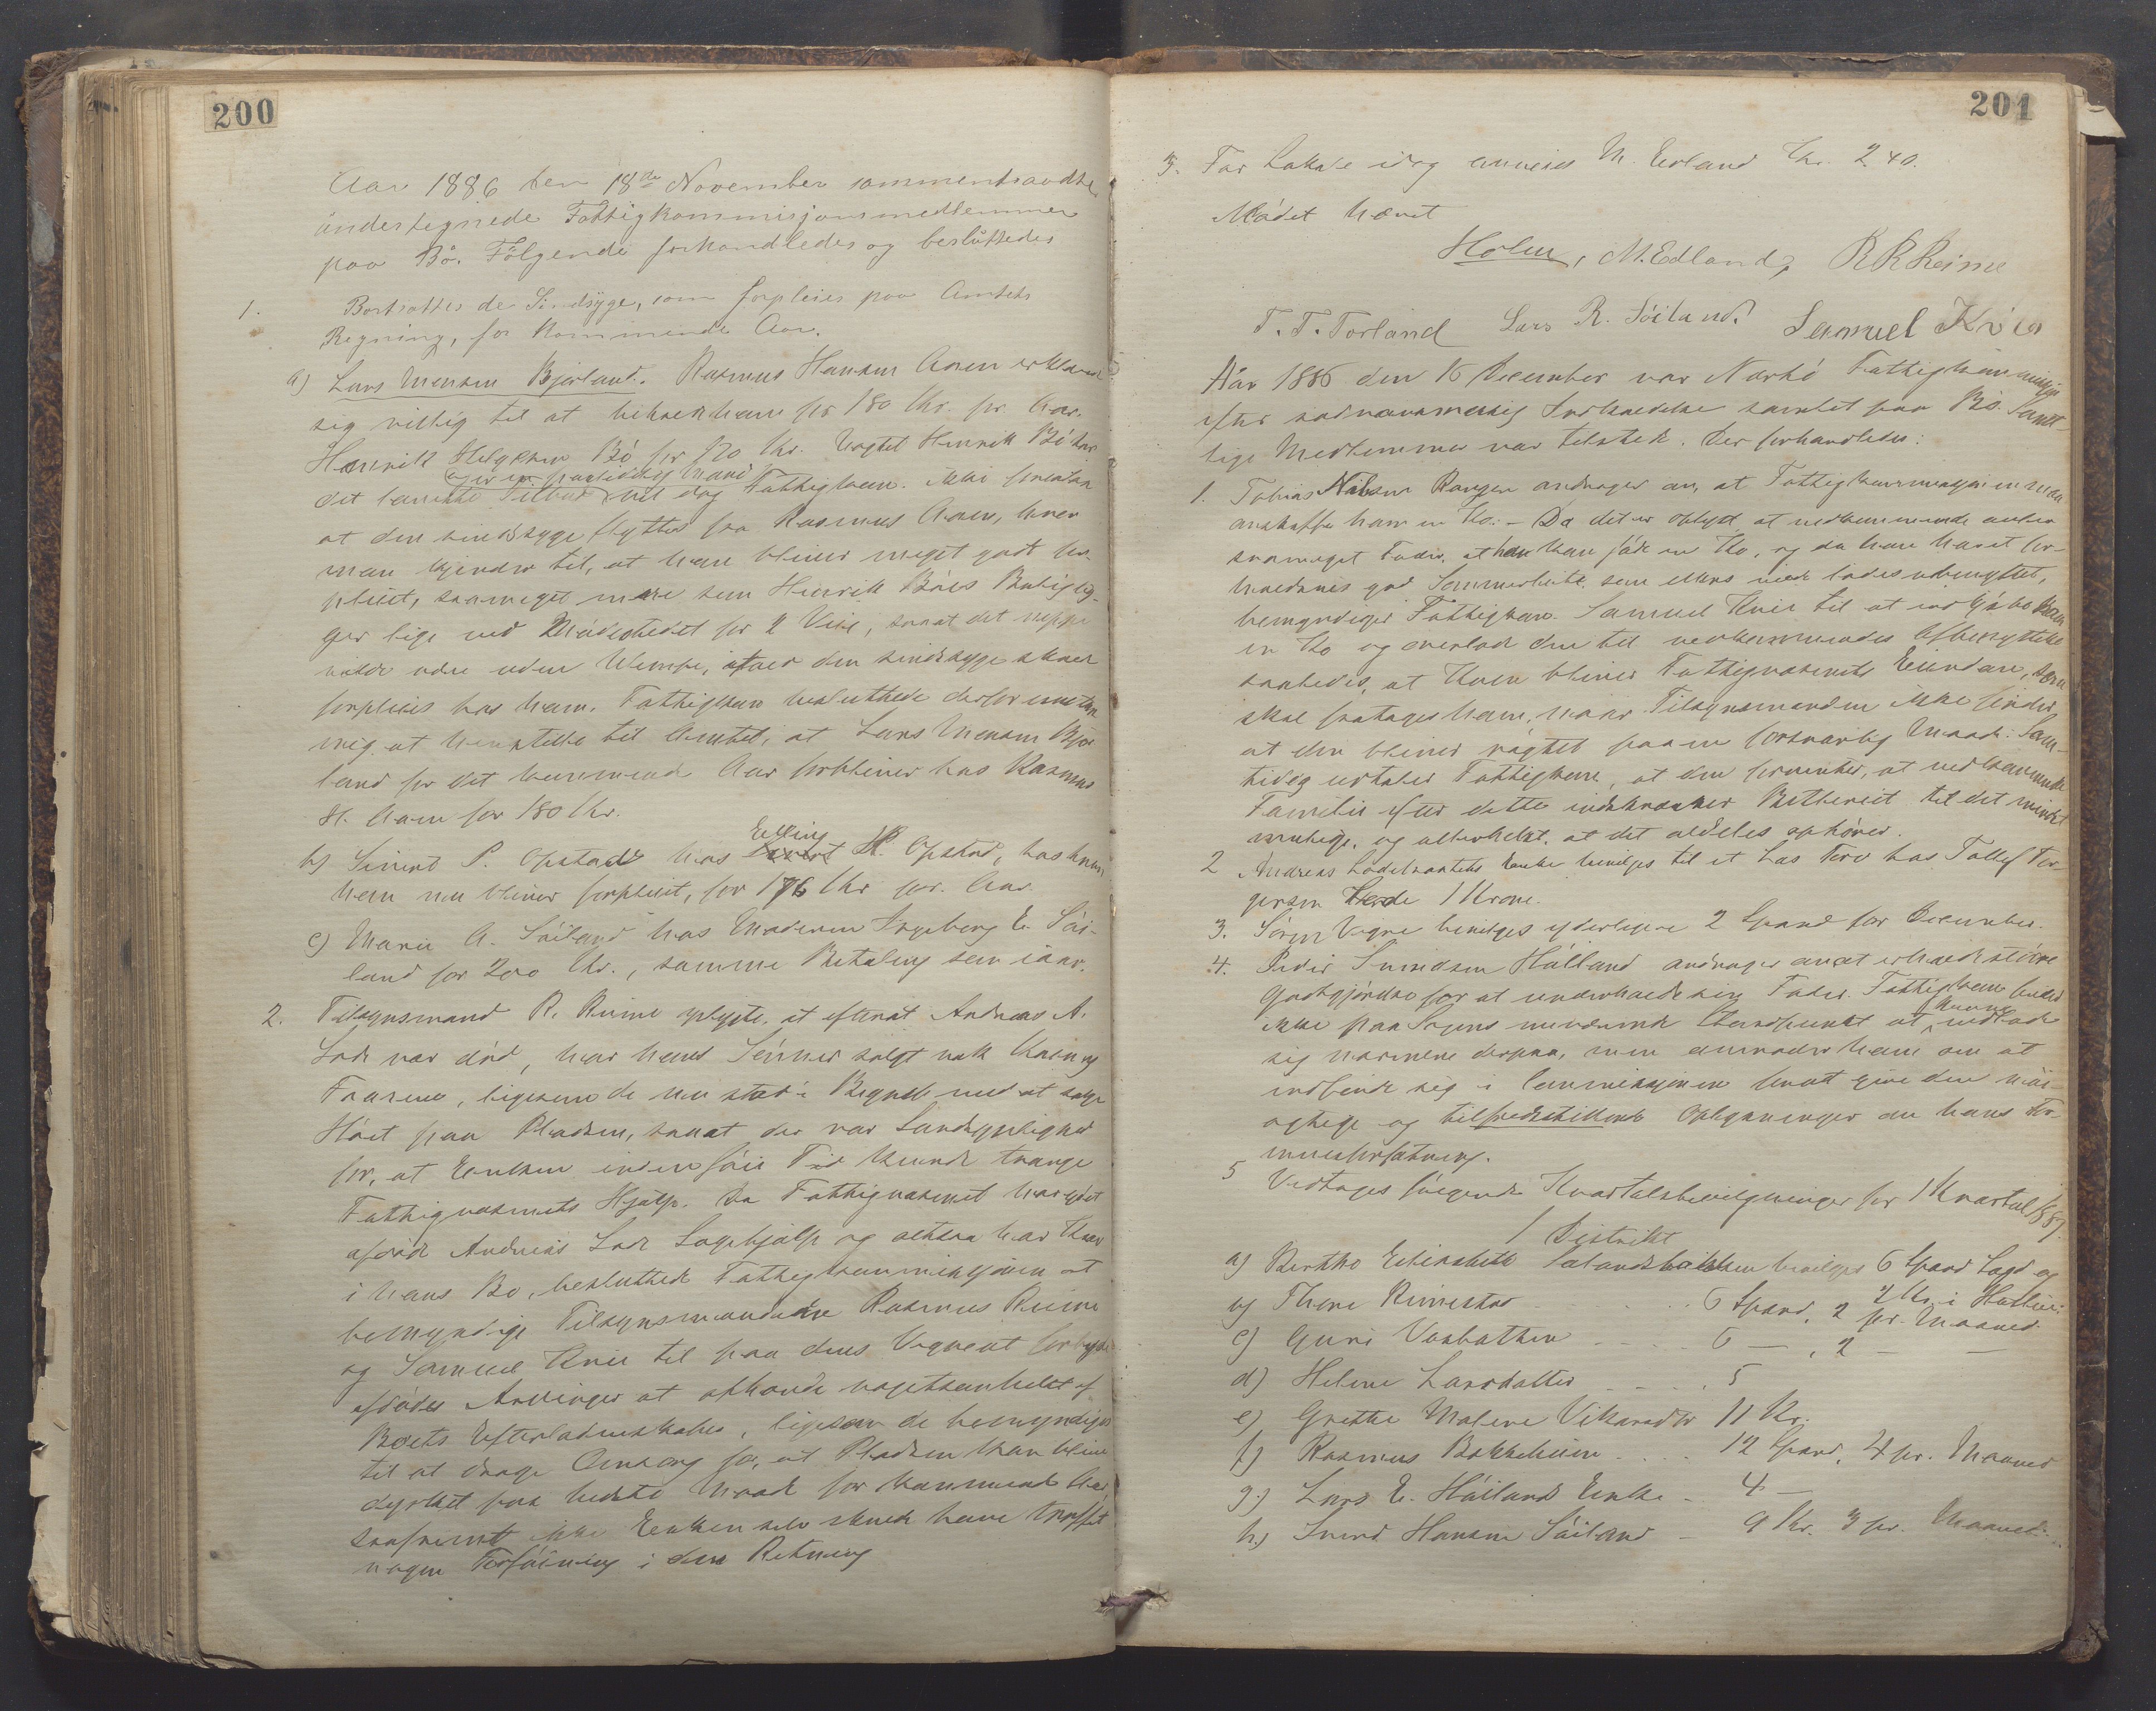 200
Aar 1886 den 18de November sammentraadte
undertegnede Fattigkommisjonsmedlemmer
paa Bö. Fölgende forhandledes og besluttedes
1. Bortsattes de Sindsyge, som forpleies paa Amtets
Regning, for kommende Aar.
a) Lars Monsen Bjorland. Rasmus Hansen Aaen erklærede
sig villig til at beholde ham for 180 Kr. pr. Aar.
Henrik Helgesen Bö for 170 Kr. Uagtet Henrik Bö har
det laveste Tilbud og er en paalidelig Mand vil dog Fattigkom. ikke
at den sindssyge flyttes fra Rasmus Aaen, hvor
man kjender til, at han bliver meget godt for-
pleiet, saameget mere som Henrik Böes Bolig lig-
ger lige ved Mödestedet for 2 Veie, saaat det neppe
vilde være uden Ulempe, ifald den sindssyge skulde
forpleies hos ham. Fattigkom besluttede derfor enstem
mig at henstille til Amtet, at Lars Monsen Bjor
land for det kommende Aar forbliver hos Rasmus
H. Aaen for 180 Kr.
b) Sivert P. Opstad hos Elling H. Opstad, hos hvem
han nu bliver forpleiet, for 176 Kr pr. Aar.
c) Marie A. Söiland hos Moderen Ingeborg E. Söi-
land for 200 Kr., samme Betaling som iaar.
2. Tilsynsmand R. Reime oplyste, at efterat Andreas A.
Lode var död, har hans Sönner solgt nok Koen og
Faarene, ligesom de nu stod i Begreb med at sælge
Höiet paa Pladsen, saaat der var Sandsynlighed
for, at Enken inden föie Tid kunde trænge
Fattigvæsenets Hjælp. Da Fattigvæsenet har ydet
afdöde Andreas Lode Lægehjælp og altsaa har Krav
i hans Bo, besluttede Fattigkommissjonen at
bemyndige Tilsynsmændene Rasmus Reime
og Samuel Kvie til paa dens Vegne at forbyde
afdödes Arvinger at afhænde nogetsomhelst af
Boets Efterladenskaber, ligesom de bemyndiges
til at drage Omsorg for, at Pladsen kan blive
dyrket paa bedste Maade for kommende Aar,
saafremt ikke Enken selv skulde have truffet
nogen Forföining i den Retning
201
3. For Lokale idag anvises M. Edland Kr. 2 40.
Mödet hævet
Holm, M. Edland, R R Reime
T. T. Torland Lars R. Söiland. Samuel Kvia
Aar 1886 den 16 December var Nærbö Fattigkommissjon
efter Indkaldelse samlet paa Bö. Samt-
lige Medlemmer var tilstede. Der forhandledes:
1. Tobias Nilsen Rangen andrager om, at Fattigkommissjonen maa
anskaffe ham en Ko. – Da det er oplyst at vedkommende avler
saameget Foder, at han kan föde en Ko, og da han havet for-
holdsvis god Sommerbeite, som ellers vilde lades ubenyttet,
bemyndiges Fattigkom. Samuel Kvie til at indkjöbe
en Ko og overlade den til vedkommendes Afbenyttelse
saaledes, at Koen bliver Fattigvæsenets Eiendom, som
skal fratages ham, naar Tilsynsmanden ikke finder
at den bliver rögtet paa en forsvarlig Maade. Sam-
tidig udtaler Fattigkom, at den forventer, at vedkommende
Familie efter dette indskrænker Betleriet til det mindst
mulige, og allerhelst, at det aldeles ophörer.
2 Andreas Enke bevilges til et Læs Törv hos Tollef Tor-
gersen 1 Krone.
3. Sören Vigre bevilges yderligere 2 Spand for December.
4. Peder Hölland andrager om at erholde större
Godtgjörelse for at underholde sin Fader. Fattigkom finder
ikke paa Sagens nuværende Standpunkt at kunne indlade
sig nærmere derpaa, men anmoder ham om at
indfinde sig i Commissjonen for at give den nöi-
agtige og tilfredsstillende Oplysninger om hans For-
muesforfatning.
5 Vedtages fölgende Kvartalsbevilgninger for 1 Kvartal 1887.
1 Distrikt
a) Berthe Elisabeth bevilges 6 Spand Lagd og
2 Kr. i Husleie.
og Thore Rimestad . . . . 6 Spand, 2 pr. Maaned
c) Guri . . . . 6 — , 2 — —
d) Helene Larsdatter . . . . 5
e) Grethe Malene 11 Kr.
f) Rasmus Bakkeheim . . . . 12 Spand, 4 pr. Maaned
g.) Lars E. Höilands Enke – 4 —
h.) Hansen Söiland – 9 Kr. 3 pr. Maaned.